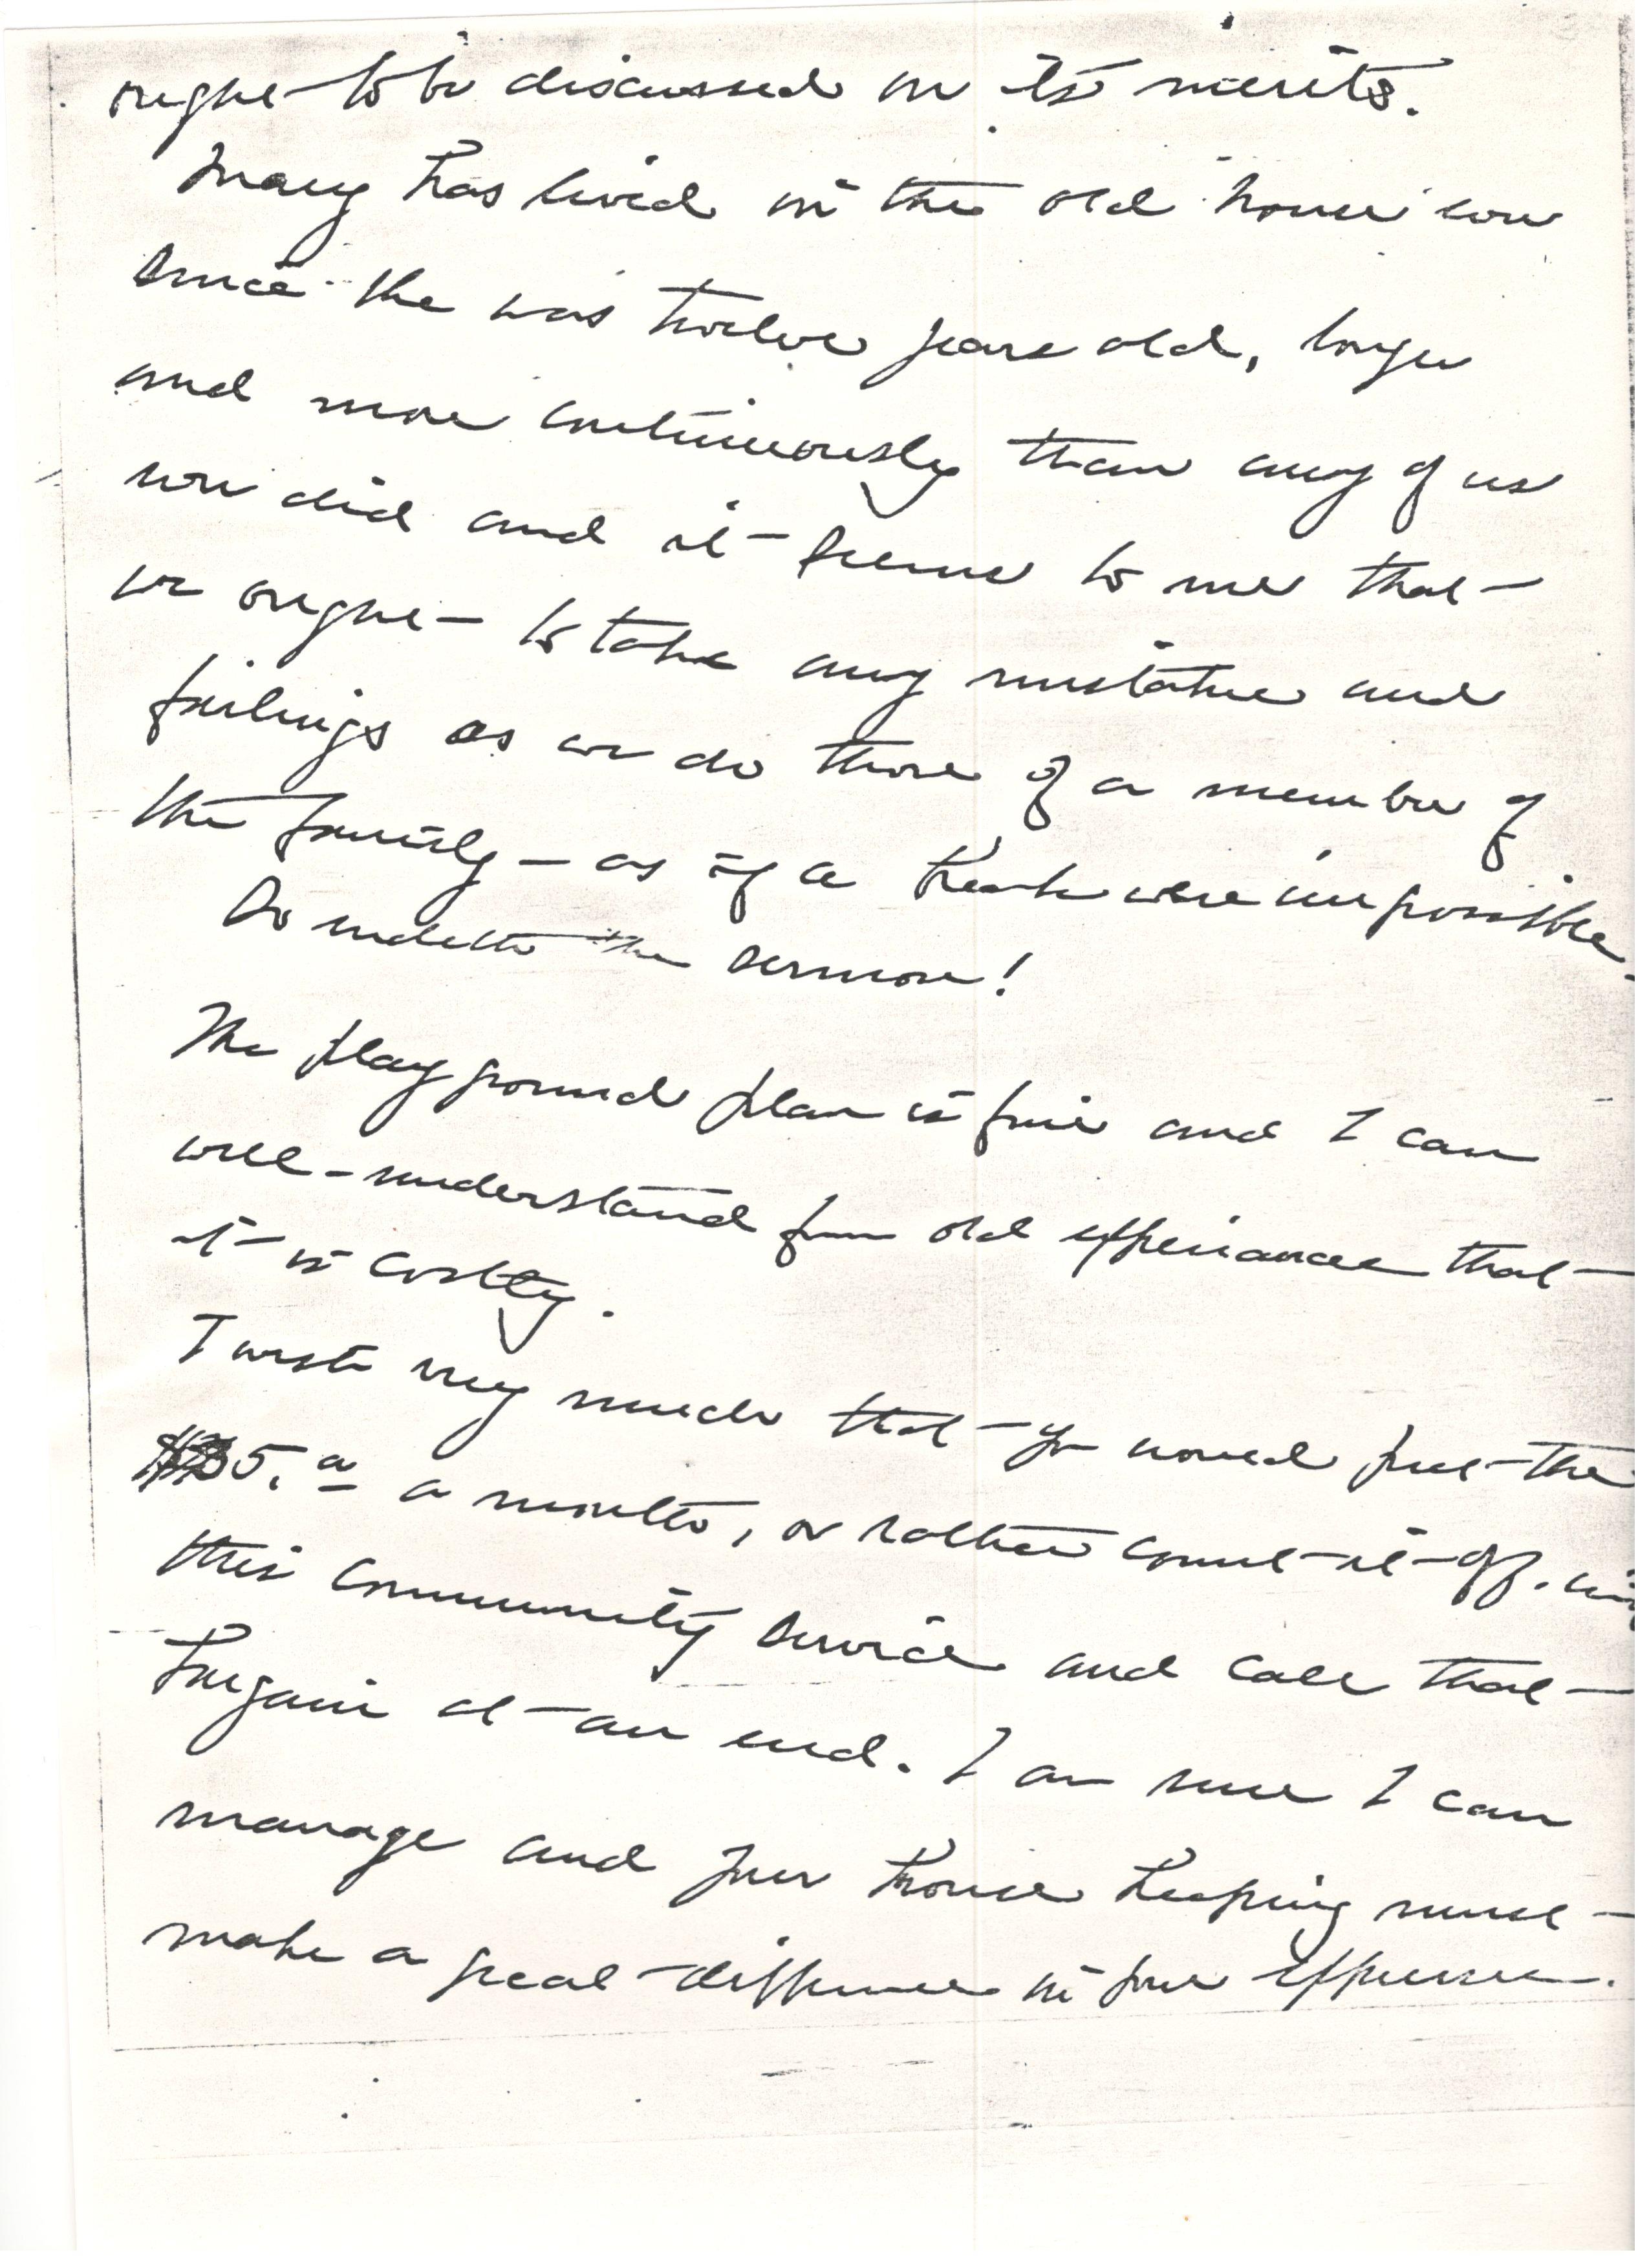 ought to be discussed on its merits.
Mary has lived in the old house now
since she was twelve years old, longer
and more continuously than any of us
now did and it seems to me that
we ought to take any mistake and
failings as we do those of a member of
the family – as if a break were impossible.
So endeth the sermon!
The play ground plan is fine and I can
well understand from old experiences that
it is costly.
I wish very much that you would put the
5. a month, or rather count it off, in
this community service and call that
bargain at an end. I am sure I can
manage and your house keeping must
make a great difference in your expenses.